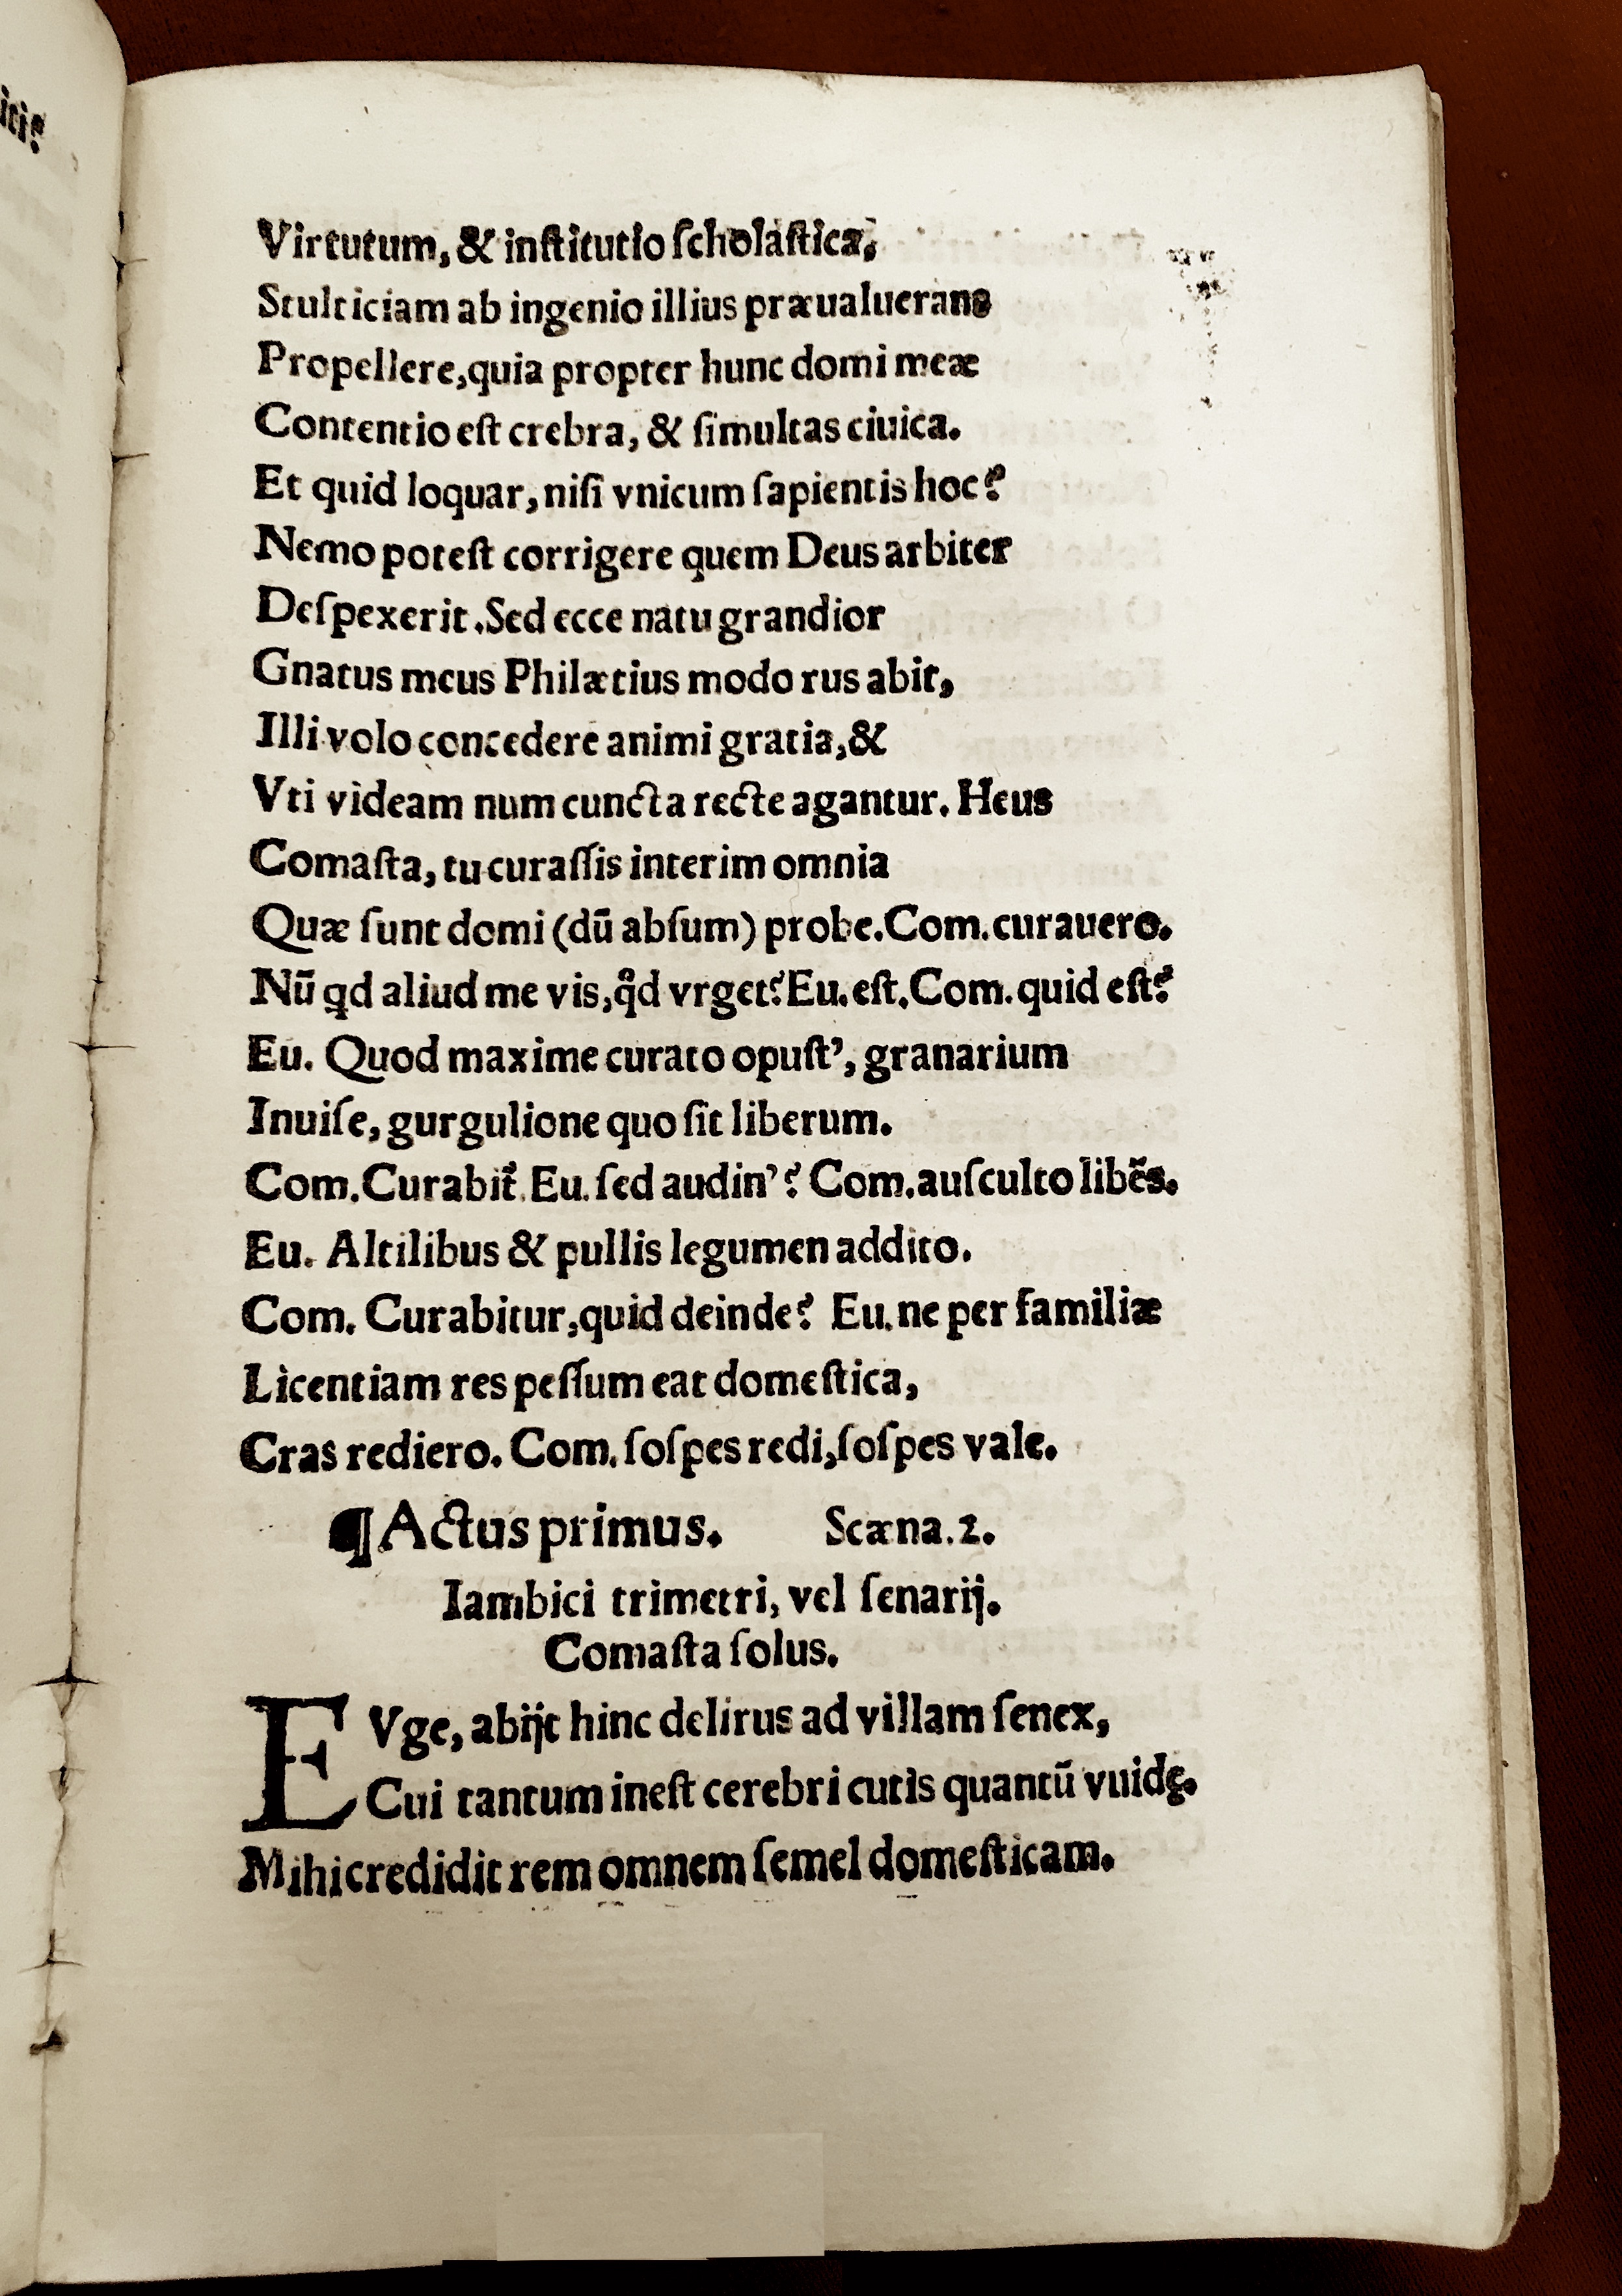 iti?
Virtutum, & inſtitutio ſcholaſtica,
Stulticiam ab ingenio illius præualuerant
Propellere,quia propter hunc domi meæ
Contentio eſt crebra, & ſimultas ciuica.
Et quid loquar, niſi vnicum ſapientis hoc?
Nemo poteſt corrigere quem Deus arbiter
Deſpexerit. Sed ecce natu grandior
Gnatus meus Philætius modo rus abit,
Illi volo concedere animi gratia, &
Vti videam num cuncta recte agantur. Heus
Comaſta, tu curaſſis interim omnia
Quæ ſunt domi (dū abſum) probe. Com. curauero.
Nū qd aliud me vis, qd vrget? Eu. eſt. Com. quid eſt?
Eu. Quod maxime curato opuſt', granarium
Inuiſe, gurgulione quo ſit liberum.
Com. Curabit̃. Eu. ſed audin'? Com. auſculto libēs.
Eu. Altilibus & pullis legumen addito.
Com. Curabitur, quid deinde? Eu. ne per familiæ
Licentiam res peſſum eat domeſtica,
Cras rediero. Com. ſoſpes redi, ſoſpes vale.
¶ Actus primus. Scæna. 2.
Iambici trimetri, vel ſenarij.
Comaſta ſolus.
EVge, abijt hinc delirus ad villam ſenex,
Cui tantum ineſt cerebri cutis quantū vuidę.
Mihi credidit rem omnem ſemel domeſticam.